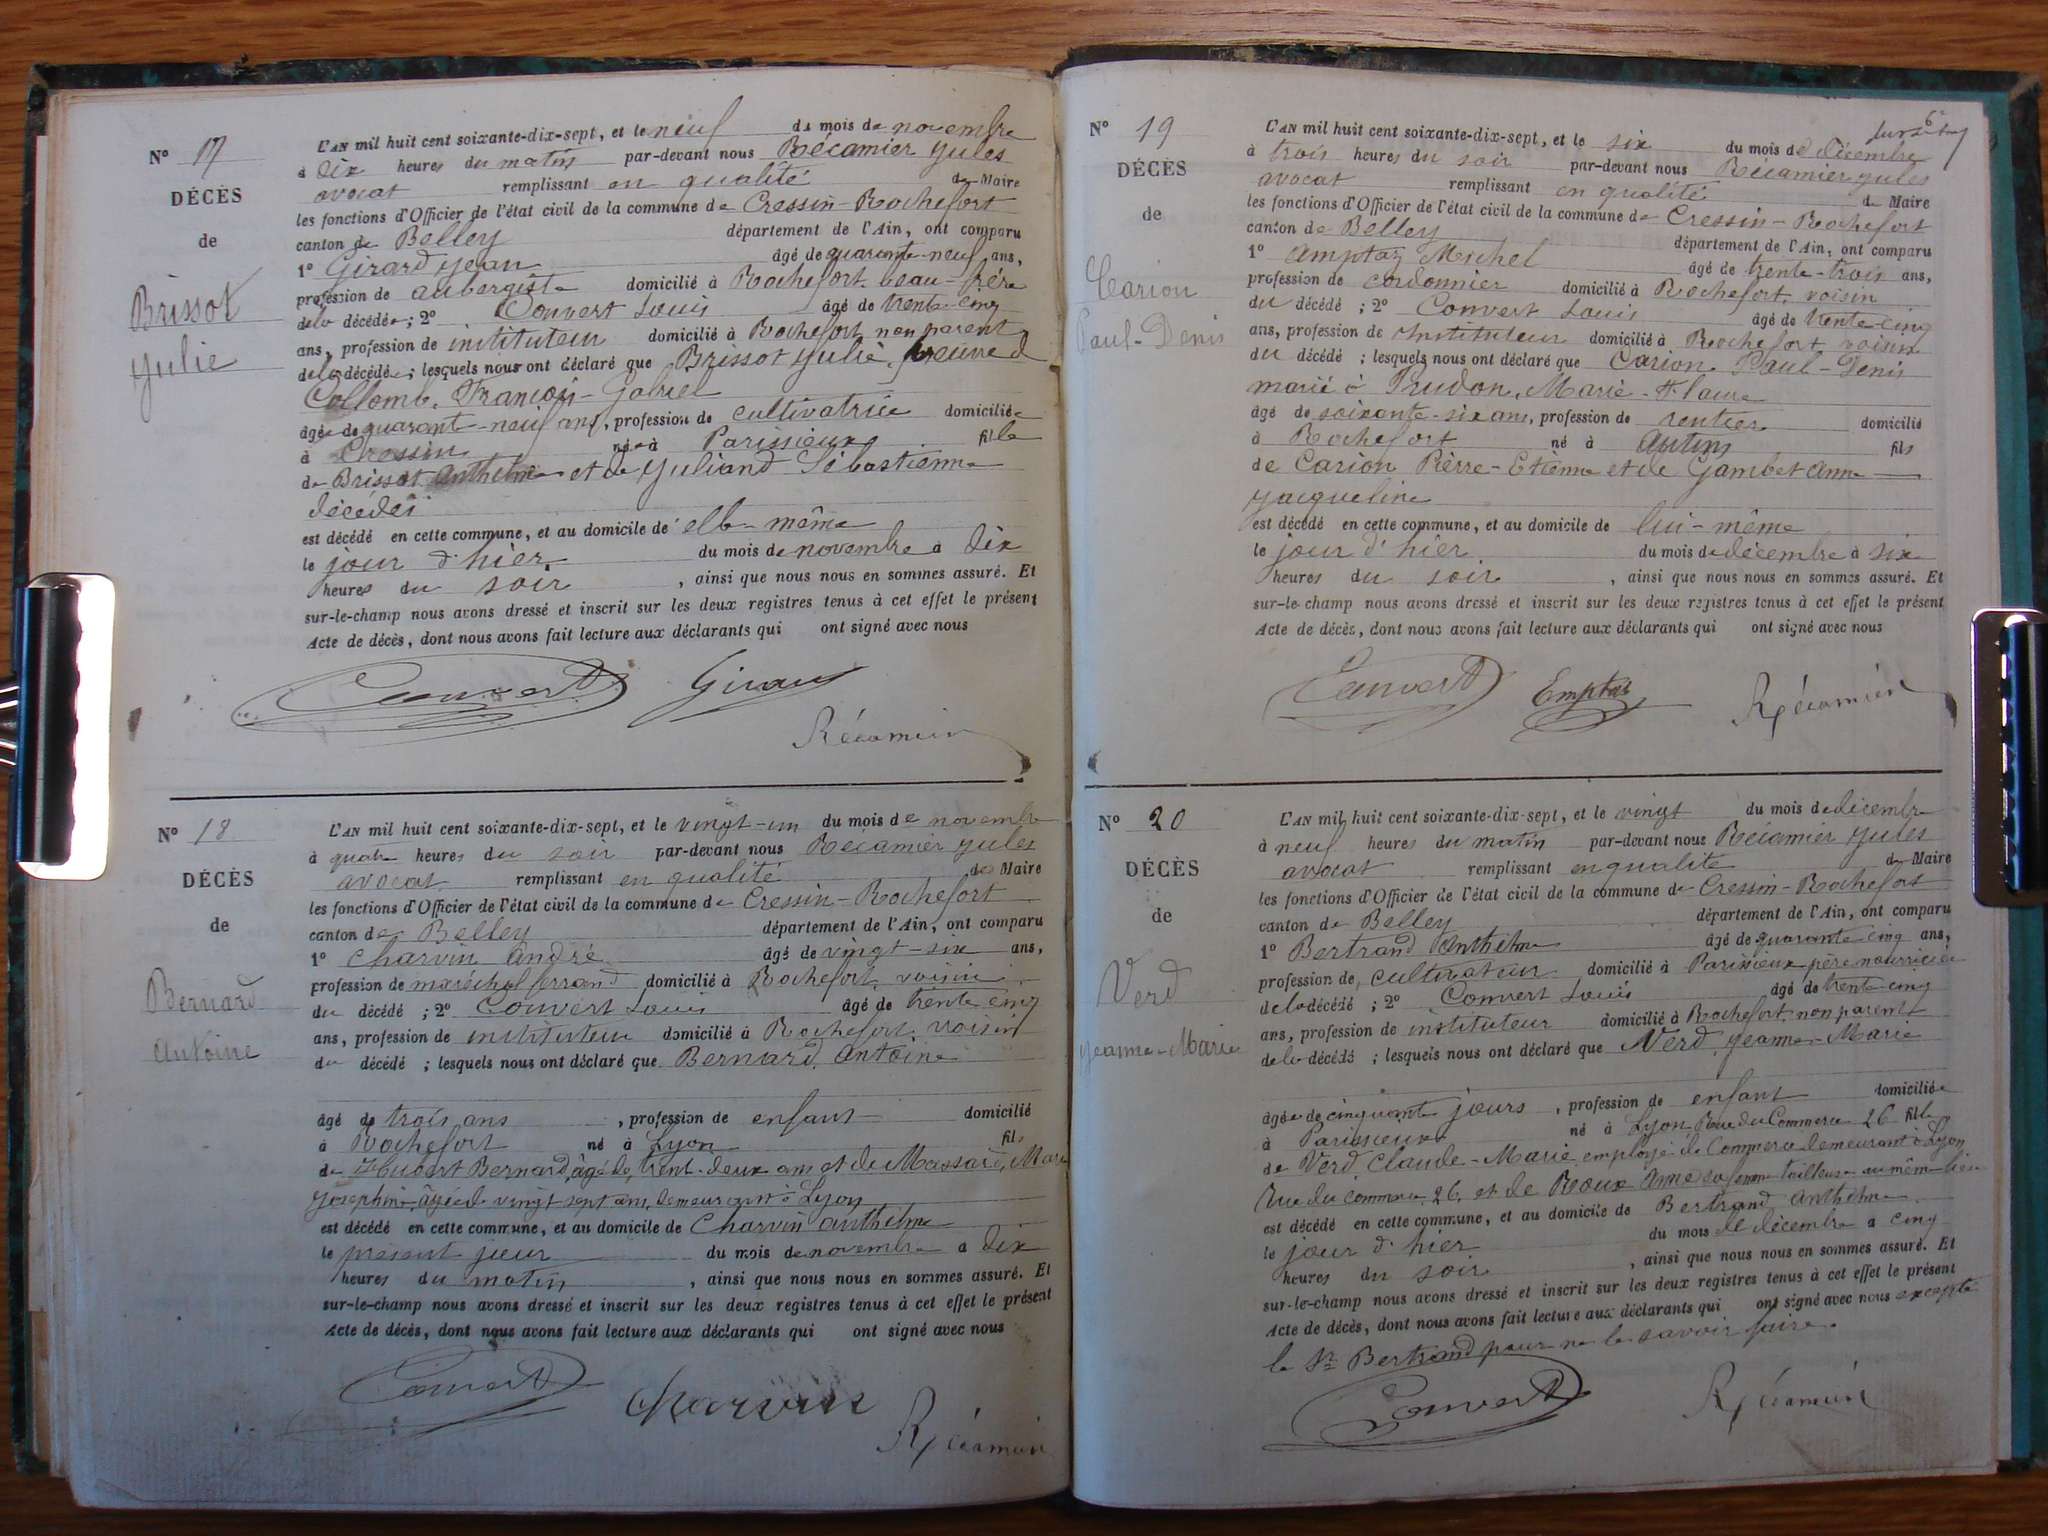 N° 17
DÉCÈS
de
Brissot
Julie
L'AN mil huit cent soixante-dix-sept, et le neuf du mois de novembre
à dix heures du matin par-devant nous Récamier Jules
avocat remplissant en qualité de Maire
les fonctions d'Officier de l'état civil de la commune de Cressin-Rochefort
canton de Belley département de l'Ain, ont comparu
1° Girard Jean âgé de quarante-neuf ans,
profession de aubergiste domicilié à Rochefort beau-frère
de la décédée; 2° Convert Louis âgé de trente-cinq
ans, profession de instituteur domicilié à Rochefort non parent
de la décédée; lesquels nous ont déclaré que Brissot Julie, veuve d
Collomb, François-Gabriel
âgée de quarant-neuf ans, profession de cultivatrice domiciliée
à Cressin née à Parissieux fille
de Brissot Anthelme et de Juliand Sébastienne
décédés
est décédé en cette commune, et au domicile de elle-même
le jour d'hier du mois de novembre à dix
heures du soir, ainsi que nous nous en sommes assuré. Et
sur-le-champ nous avons dressé et inscrit sur les deux registres tenus à cet effet le présent
Acte de décès, dont nous avons fait lecture aux déclarants qui ont signé avec nous
Convert Girard
Récamier
N° 18
DÉCÈS
de
Bernard
Antoine
L'AN mil huit cent soixante-dix-sept, et le vingt-un du mois de novembre
à quatre heures du soir par-devant nous Récamier Jules
avocat remplissant en qualité de Maire
les fonctions d'Officier de l'état civil de la commune de Cressin-Rochefort
canton de Belley département de l'Ain, ont comparu
1° Charvin André âgé de vingt-six ans,
profession de maréchal ferrand domicilié à Rochefort, voisin
du décédé; 2° Convert Louis âgé de trente cinq
ans, profession de instituteur domicilié à Rochefort voisin
du décédé; lesquels nous ont déclaré que Bernard Antoine
âgé de trois ans, profession de enfant domicilié
à Rochefort né à Lyon fils
de Hubert Bernard, âgé de trent-deux ans et de Massari, Marie
Josephine âgée de vingt sept ans, demeurant à Lyon
est décédé en cette commune, et au domicile de Charvin Anthelme
le présent jour du mois de novembre à dix
heures du matin, ainsi que nous nous en sommes assuré. Et
sur-le-champ nous avons dressé et inscrit sur les deux registres tenus à cet effet le présent
Acte de décès, dont nous avons fait lecture aux déclarants qui ont signé avec nous
Convert Charvin
Récamier
N° 19
DÉCÈS
de
Carion
Paul-Denis
L'AN mil huit cent soixante-dix-sept, et le six du mois de décembre
à trois heures du soir par-devant nous Récamier Jules
avocat remplissant en qualité de Maire
les fonctions d'Officier de l'état civil de la commune de Cressin-Rochefort
canton de Belley département de l'Ain, ont comparu
1° Amptaz Michel âgé de trente-trois ans,
profession de cordonnier domicilié à Rochefort voisin
du décédé; 2° Convert Louis âgé de trente-cinq
ans, profession de instituteur domicilié à Rochefort voisin
du décédé; lesquels nous ont déclaré que Carion Paul-Denis
marié à Prudon, Marie-Flaure
âgé de soixante-six ans, profession de rentier domicilié
à Rochefort né à Autun fils
de Carion Pierre-Etienne et de Gambet Anne
Jacqueline
est décédé en cette commune, et au domicile de lui-même
le jour d'hier du mois de décembre à six
heures du soir, ainsi que nous nous en sommes assuré. Et
sur-le-champ nous avons dressé et inscrit sur les deux registres tenus à cet effet le présent
Acte de décès, dont nous avons fait lecture aux déclarants qui ont signé avec nous
Convert Emptaz Récamier
N° 20
DÉCÈS
de
Verd
Jeanne-Marie
L'AN mil huit cent soixante-dix-sept, et le vingt du mois de décembre
à neuf heures du matin par-devant nous Récamier Jules
avocat remplissant en qualité de Maire
les fonctions d'Officier de l'état civil de la commune de Cressin-Rochefort
canton de Belley département de l'Ain, ont comparu
1° Bertrand Anthelme âgé de quarante cinq ans,
profession de cultivateur domicilié à Parissieux père nourricier
de la décédé; 2° Convert Louis âgé de trente cinq
ans, profession de instituteur domicilié à Rochefort non parent
de la décédé; lesquels nous ont déclaré que Verd Jeanne-Marie
âgée de cinquante jours, profession de enfant domiciliée
à Parissieux né à Lyon Rue du Commerce 26 fille
de Verd Claude-Marie employé de Commerce demeurant à Lyon
Rue du commerce 26, et de Roux Anne sa femme tailleuse au même lieu
est décédé en cette commune, et au domicile de Bertrand Anthelme
le jour d'hier du mois de décembre à cinq
heures du soir, ainsi que nous nous en sommes assuré. Et
sur-le-champ nous avons dressé et inscrit sur les deux registres tenus à cet effet le présent
Acte de décès, dont nous avons fait lecture aux déclarants qui ont signé avec nous excepté
le Sr Bertrand pour ne le savoir faire.
Convert Récamier